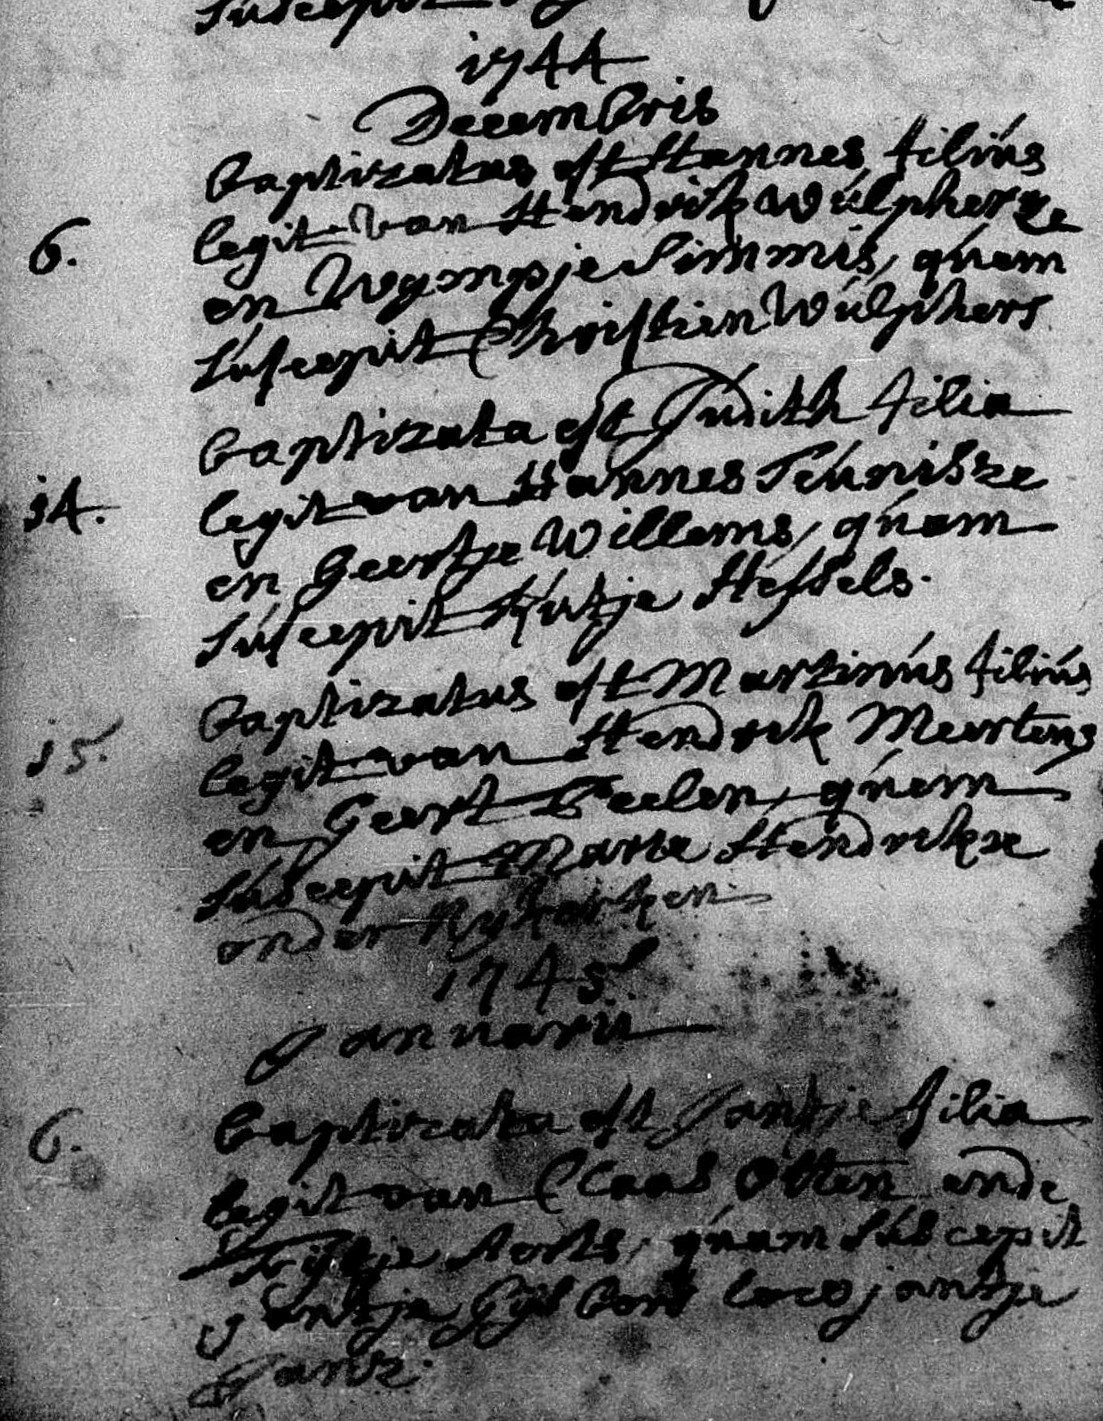 suscepit
1744
Decembris
Baptizatus est Hannes filius
6. legit van Hendrik Wulpherze
en Wympje Simmis, quem
suscepit Christien Wulphers
Baptizata est Judith filia
14. legit van Hannes Teunisze
en Geertje Willems, quam
suscepit Hessels.
Baptizatus est Martinus filius
15. legit van Hendrik Meertens
en Geert Beelen, quem
suscepit Marte Hendrickze
onder Nykerken
1745
Januarii
6. Baptizata est Jantje filia
legit van Claas Otten ende
Aerts, quam suscepit
Gysbert loco jantje
Jansz.